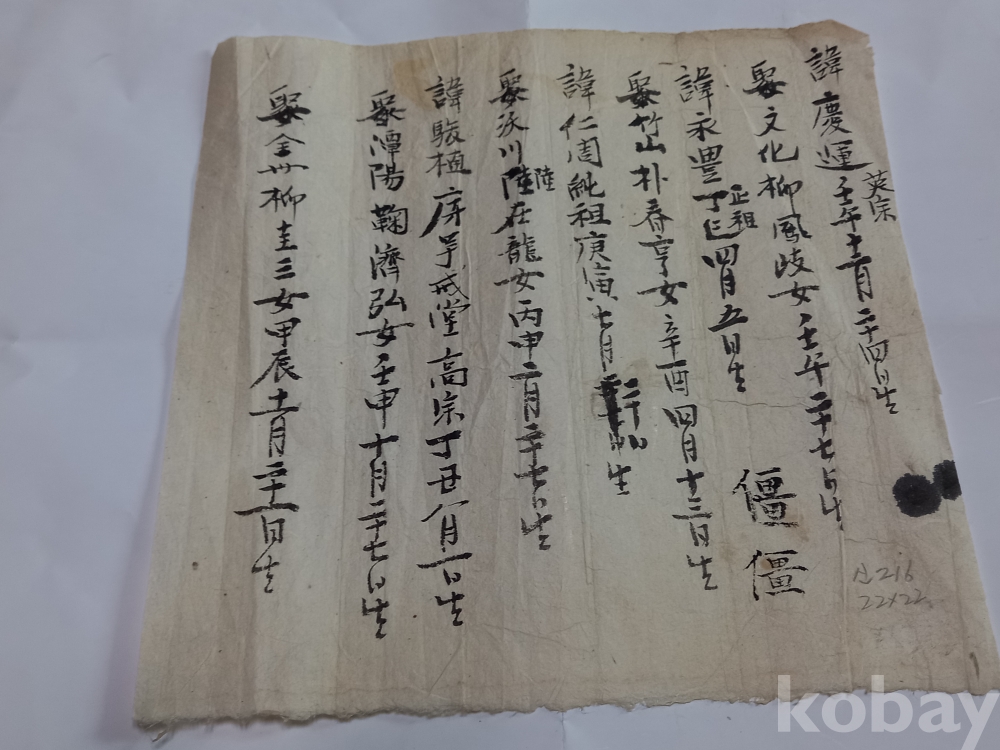 諱慶運英宗壬午十一月二十四日生
娶文化柳鳳岐女壬午二十七日生
諱永豊正祖丁巳四月五日生
僵僵
娶竹山朴春亨女辛酉四月十三日生
諱仁周純祖庚寅七月二十九日生
娶沃川陸陸在龍女丙申二月二十七日生
諱駿植房号戒堂高宗丁丑八月一日生
娶潭陽鞠濟弘女壬申十月二十七日生
娶全州柳圭三女甲辰十一月二十一日生
신216
22x22
kobay